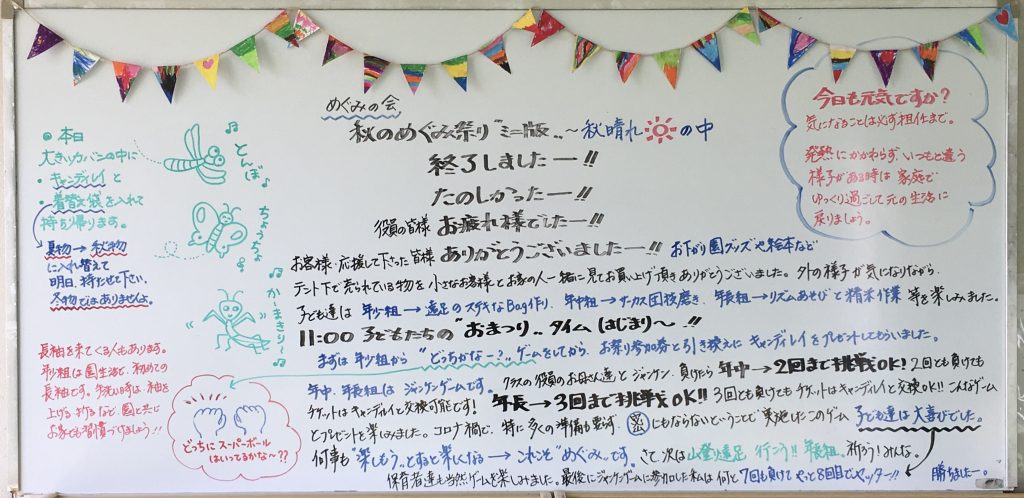 めぐみの会
秋のめぐみ祭り〝ミニ版〟〜秋晴れの中
終了しましたー!!
たのしかったー!!
役員の皆様 お疲れ様でしたー!!
お客様・応援して下さった皆様 ありがとうございましたー!! お下がり園グッズや絵本など
テント下で売られている物を小さなお客様とお家の人一緒に見てお買上げ頂きありがとうございました。外の様子が気になりながら
子ども達は 年少組→遠足のステキなBag作り、年中組→サーカス団技磨き、年長組→リズムあそびと精米作業 等を楽しみました。
11:00 子どもたちの〝おまつり〟タイム はじまり〜!!
まずは年少組から〝どっちかなー?〟ゲームをしてから、お祭り参加券と引き換えにキャンディレイをプレゼントしてもらいました。
年中、年長組は ジャンケンゲームです。クラスの役員のお母さん達とジャンケン。負けたら年中→2回まで挑戦OK! 2回とも負けても
チケットはキャンディレイと交換可能です! 年長→3回まで挑戦OK!! 3回とも負けてもチケットはキャンディレイと交換OK!! こんなゲーム
とプレゼントを楽しみました。コロナ禍で、特に多くの準備も要さず、密にもならないということで実施したこのゲーム 子ども達は大喜びでした。
何事も〝楽しもう〟とすると楽しくなる→これぞ〝めぐみ〟です。さて次は山登り遠足 行こう!! 年長組。祈ろう!みんな。
保育者達も当然ゲームを楽しみました。最後にジャンケンゲームに参加した私は何と7回も負けてやっと8回目でヤッター!! 勝ちましたー。
本日
大きいカバンの中に
・キャンディレイと
・着替え袋を入れて
持ち帰ります。
夏物→秋物
に入れ替えて
明日、持たせて下さい。
冬物ではありませんよ。
とんぼ
ちょうちょ
かーまきりー
長袖を来てくる人もあります。
年少組は園生活で、初めての
長袖です。今秋い時は、袖を
上げる・折るなど、園と共に
お家でも習慣づけましょう!!
どっちにスーパーボール
はいってるかな〜??
今日も元気ですか?
気になることは必ず担任まで。
発熱にかかわらず、いつもと違う
様子がある時は 家庭で
ゆっくり過ごして元の生活に
戻りましょう。